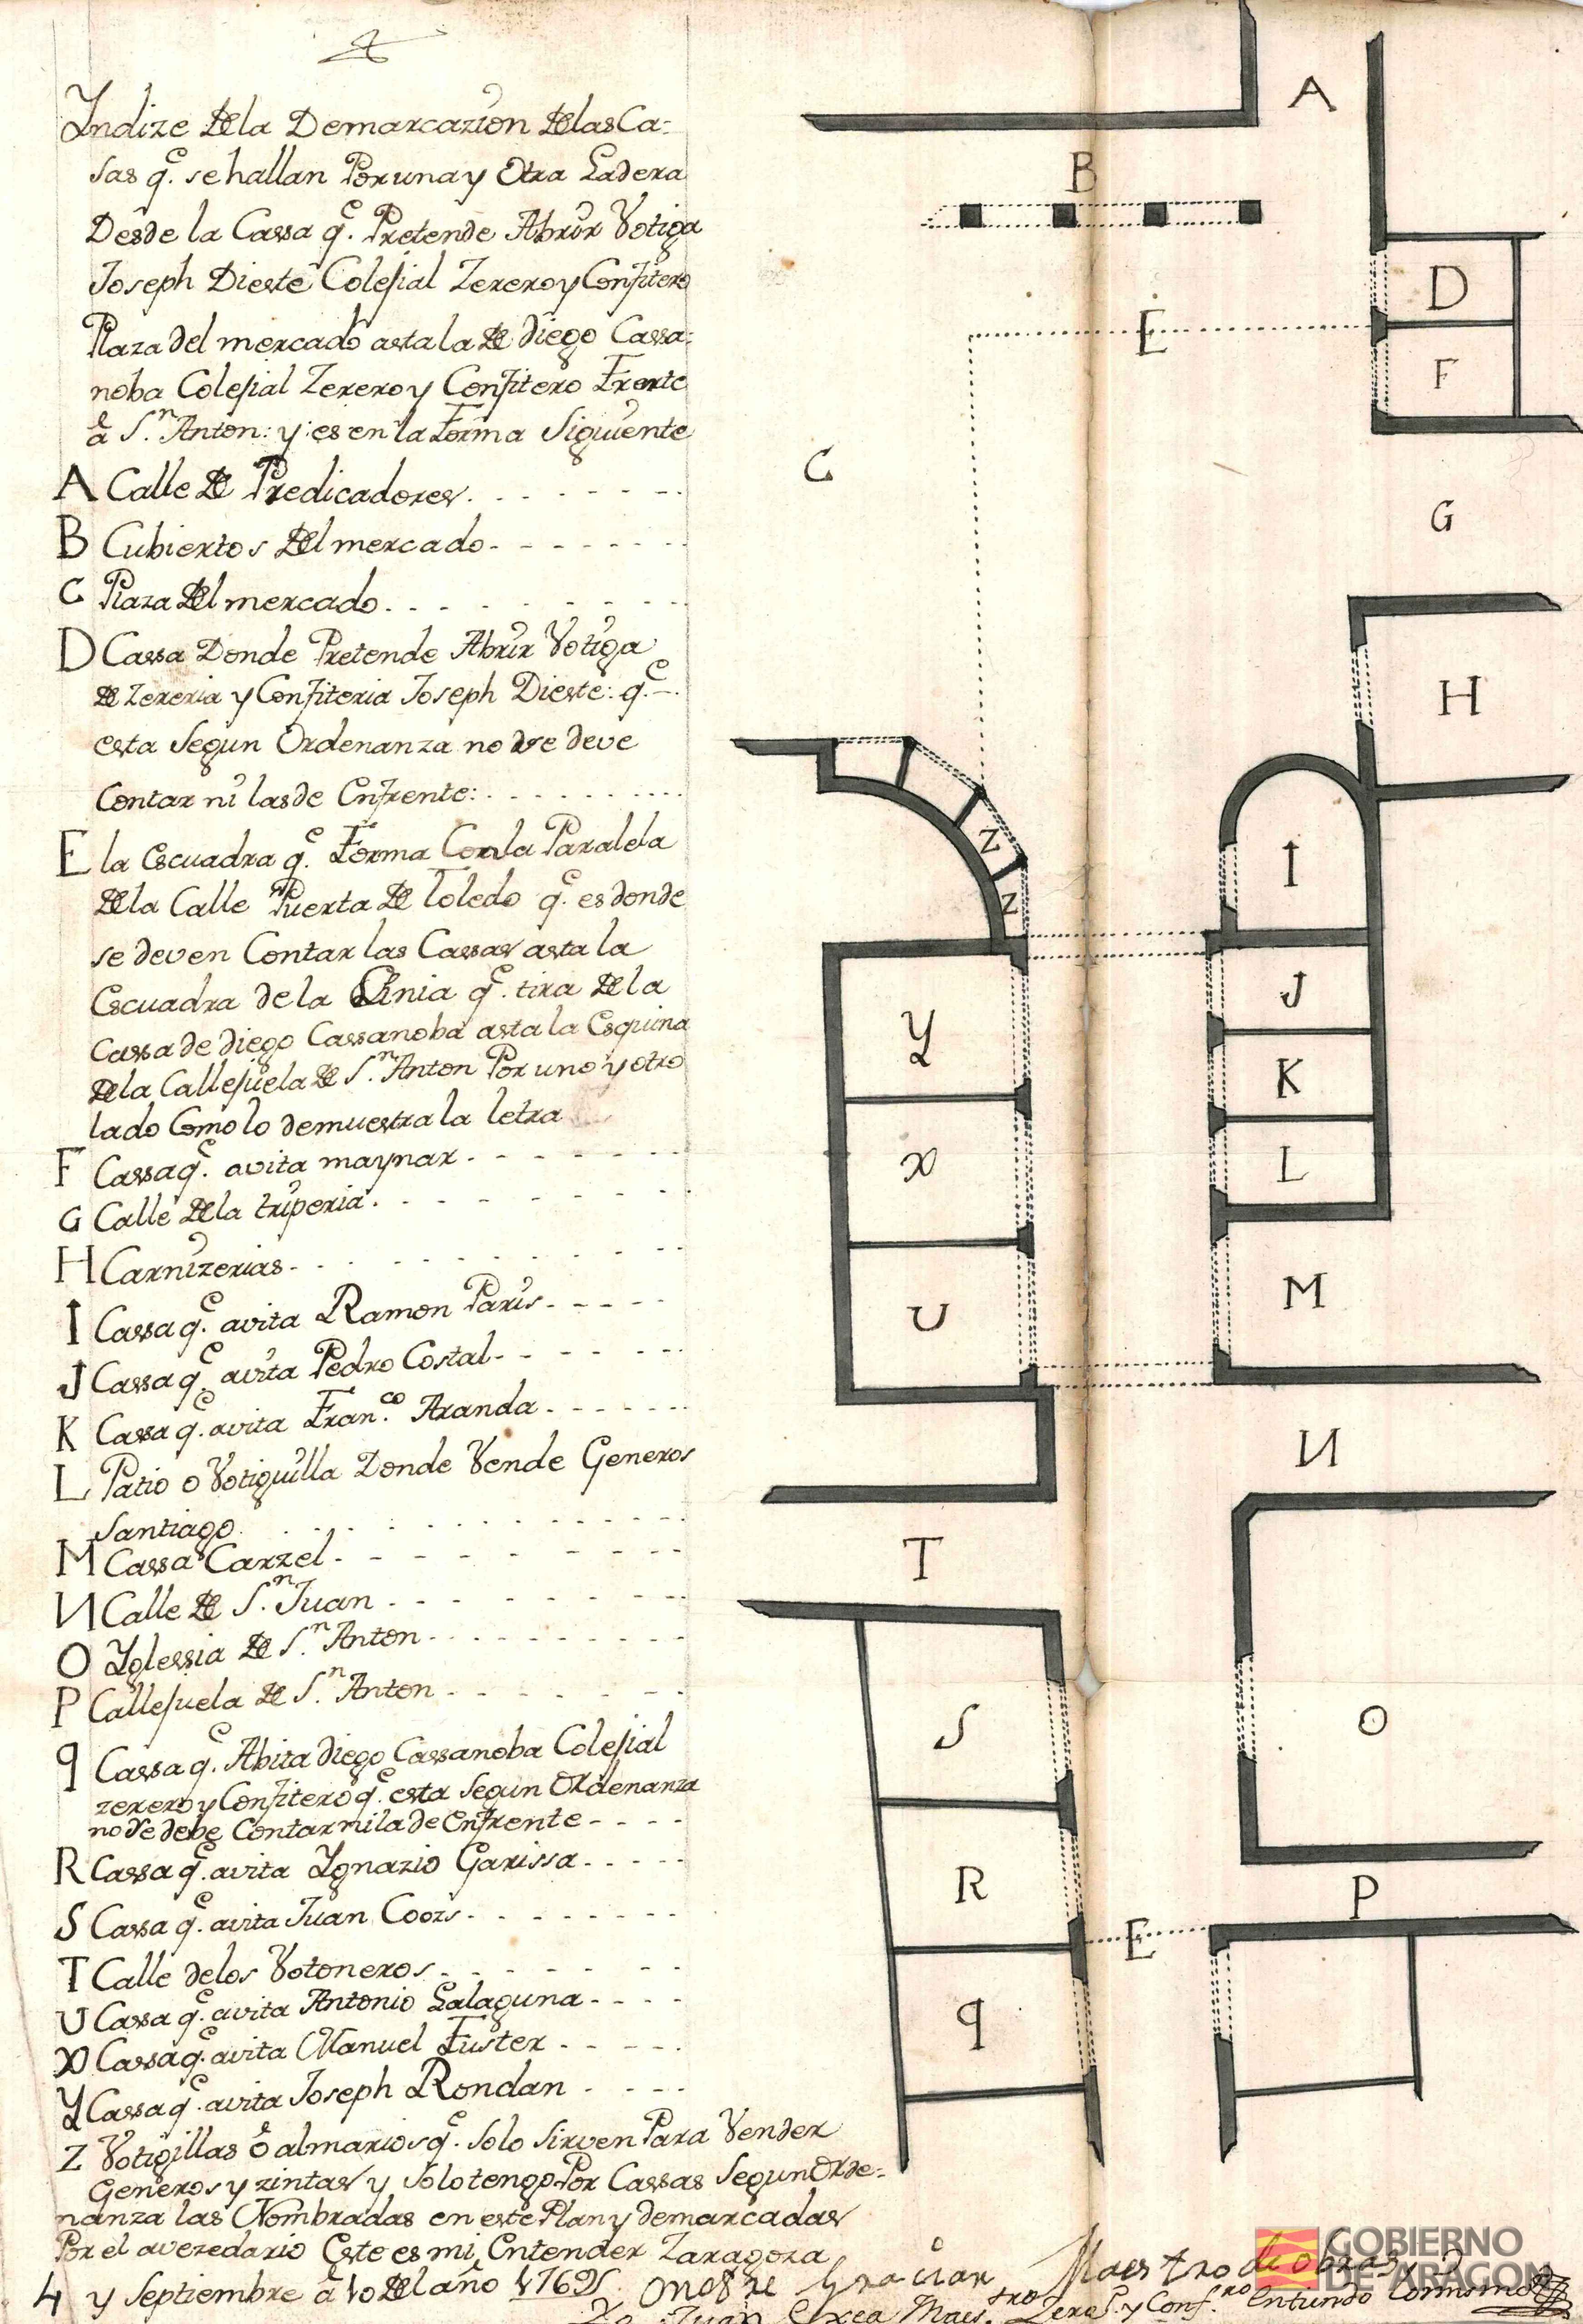 Yndize de la Demarcazion de las Ca=
sas q.e se hallan Por una y Otra Ladera
Desde la Cassa q.e Pretende Abrir Votiga
Joseph Dieste Colejial Zerero y Confitero
Plaza del mercado asta la de diego Cassa=
noba Colejial Zerero y Confitero Frente
â S.n Anton: y es en la Forma Siguiente
A Calle de Predicadores
B Cubiertos del mercado
C Plaza del mercado
D Cassa Donde Pretende Abrir Votiga
de Zereria y Confiteria Joseph Dieste: q.e
esta Segun Ordenanza no se deve
Contar ni las de Enfrente:
E la Escuadra q.e Forma Con la Paralela
de la Calle Puerta de Toledo q.e es donde
se deven Contar las Cassas asta la
Escuadra de la Linia q.e tira de la
Cassa de diego Cassanoba asta la Esquina
de la Callejuela de S.n Anton Por uno y otro
lado Como lo demuestra la letra
F Cassa q.e avita maynar
G Calle de la triperia
H Carnizerias
I Cassa q.e avita Ramon Paris
J Cassa q.e avita Pedro Costal
K Cassa q.e avita Fran.co Aranda
L Patio o Votiguilla Donde Vende Generos
Santiago
M Cassa Carzel
N Calle de S.n Juan
O Yglessia de S.n Anton
P Callejuela de S.n Anton
q Cassa q.e Abita diego Cassanoba Colejial
zerero y Confitero q.e esta Segun Ordenanza
no se debe Contar ni la de Enfrente
R Cassa q.e avita Ygnazio Garissa
S Cassa q.e avita Juan Coois
T Calle de los Votoneros
U Cassa q.e avita Antonio Lalaguna
X Cassa q.e avita Manuel Fuster
Y Cassa q.e avita Joseph Rondan
Z Votigillas ô almarios q.e Solo Sirven Para Vender
Generos y zintas y Solo tengo Por Cassas Segun Orde=
nanza las Nombradas en este Plan y demarcadas
Por el avezedario Este es mi Entender Zaragoza
y Septiembre â 10 del año 1769
Onofre Gracian Maestro de obras
Juan Maes.tro Zere.o y Conf.ro Entiendo lo mismo
A
B
D
E
F
C
G
H
I
Z
Z
J
Y
K
X
L
U
M
N
T
S
O
R
P
E
q
GOBIERNO
DE ARAGON